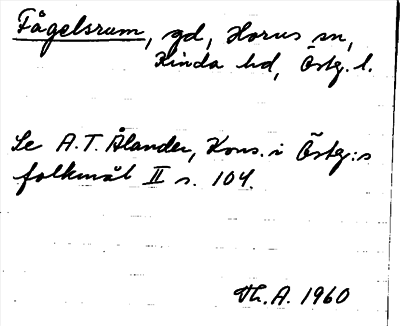 Fågelsrum, gd, Horns sn,
Kinda hd, Östg. l.
Se A.T. Ålander, Kons. i Östg:s
folkmål II s. 104.
Th. A. 1960